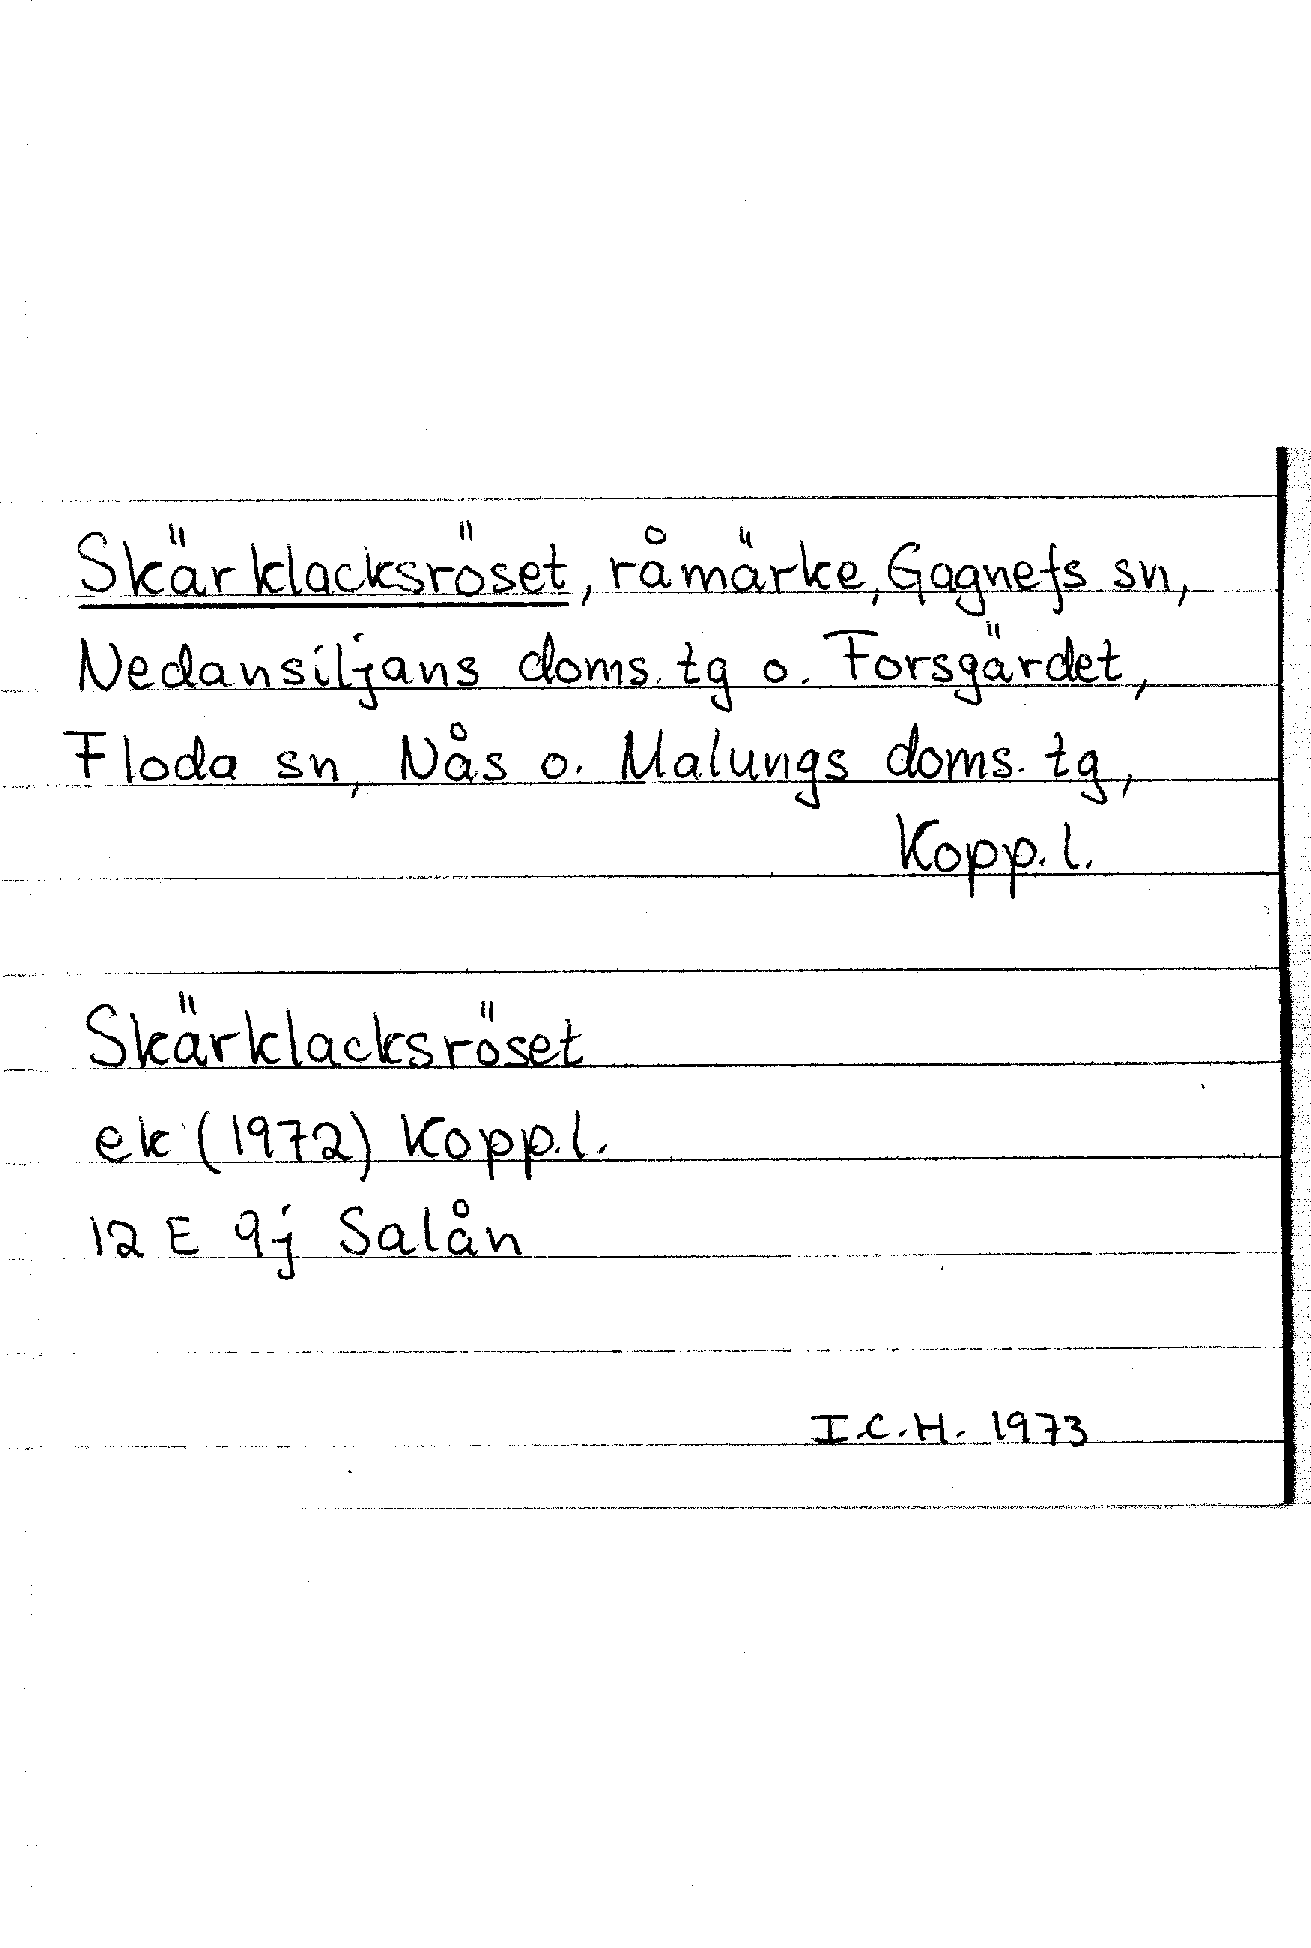 Skärklacksröset, råmärke, Gagnefs sn,
Nedansiljans doms. tg o. Forsgärdet,
Floda sn, Nås o. Malungs doms. tg,
Kopp. l.
Skärklacksröset
ek (1972) Kopp. l.
12 E 9j Salån
I.C.H. 1973